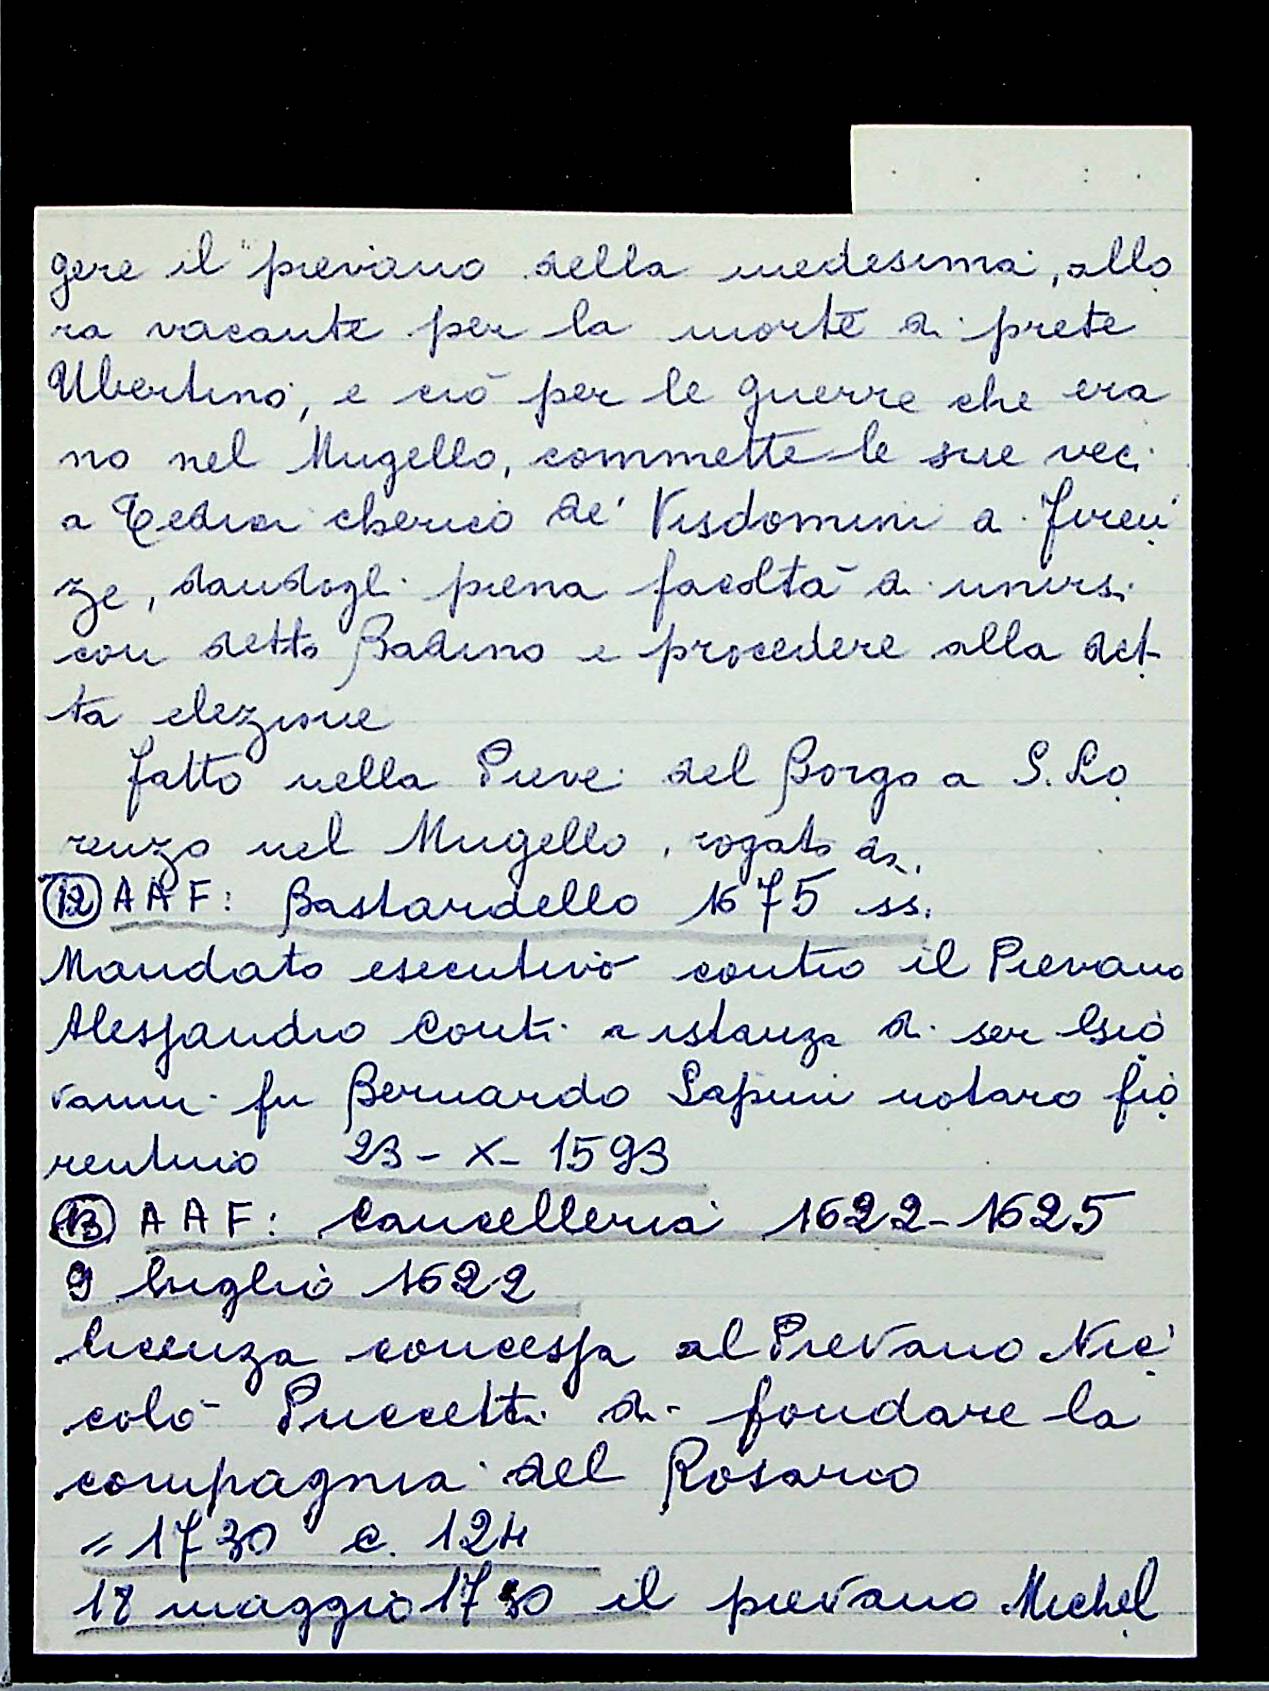 gere il pievano della medesima, allo
ra vacante per la morte di prete
Ubertino, e ciò per le guerre che era
no nel Mugello, commette le sue veci
a Tedici cherico de' Visdomini di Firen
ze, dandogli piena facoltà di unirsi
con detto Badino e procedere alla det
ta elezione
fatto nella Pieve del Borgo a S. Lo
renzo nel Mugello, rogato da.
12 AAF: Bastardello 1675 ss.
Mandato esecutivo contro il Pievano
Alessandro Conti a istanza di ser Gio
vanni fu Bernardo Lapini notaro fio
rentino 23 - X - 1593
13 AAF: Cancelleria 1622-1625
9 luglio 1622
licenza concessa al Pievano Nic
colò Puccetti di fondare la
compagnia del Rosario
= 1730 c. 124
18 maggio 1730 il pievano Michel